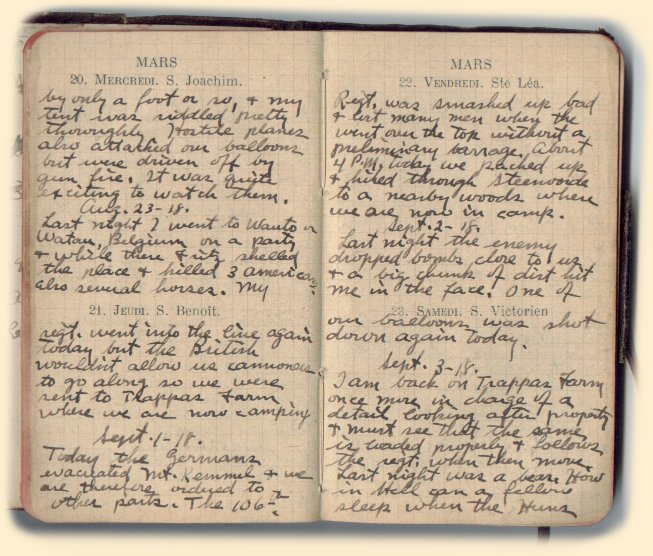 MARS
20. MERCREDI. S. Joachim.
by only a foot or so, & my
tent was riddled pretty
thoroughly. Hostile planes
also attacked our balloons
but were driven off by
gun fire. It was quite
exciting to watch them.
Aug. 23-18.
Last night I went to Wauto or
Watau, Belgium on a party
& while there Fritz shelled
the place & killed 3 americans
also several horses. My
21. JEUDI. S. Benoît.
regt. went into the line again
today but the British
wouldnt allow us cannoniers
to go along so we were
sent to Trappas Farm
where we are now camping
Sept. 1-18.
Today the Germans
evacuated Mt. Kemmel & we
are therefore ordered to
other parts. The 106th
MARS
22. VENDREDI. Ste Léa.
Regt. was smashed up bad
& lost many men when the
went over the top without a
preliminary barrage. About
4 P.M. today we packed up
& hired through Steenvoorde
to a nearby woods where
we are now in camp.
Sept. 2-18.
Last night the enemy
dropped bombs close to us
& a big chunk of dirt hit
me in the face. One of
23. SAMEDI. S. Victorien
our balloons was shot
down again today.
Sept. 3-18.
I am back on Trappas Farm
once more in charge of a
detail looking after property
& must see that the same
is loaded properly & follows
the regt. when then move.
Last night was a bear. How
in Hell can a fellow
sleep when the Huns